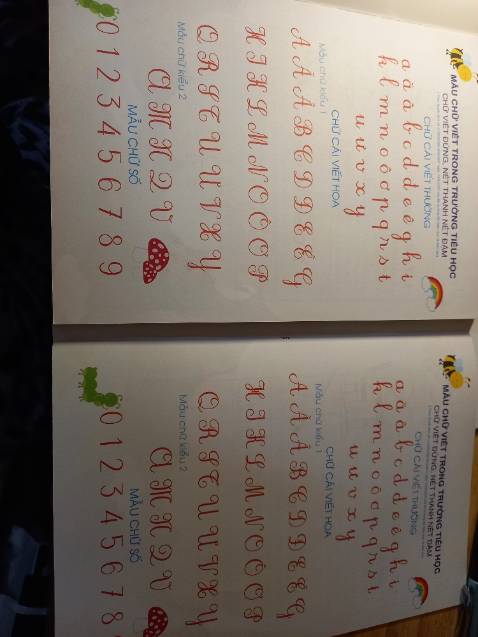 MẪU CHỮ VIẾT TRONG TRƯỜNG TIỂU HỌC
CHỮ VIẾT ĐỨNG, NÉT THANH NÉT ĐẬM
CHỮ CÁI VIẾT THƯỜNG
a ă â b c d đ e ê g h i
k l m n o ô ơ p q r s t
u ư v x y
CHỮ CÁI VIẾT HOA
Mẫu chữ kiểu 1
A Ă Â B C D Đ E Ê G
H I K L M N O Ô Ơ P
Q R S T U Ư V X Y
Mẫu chữ kiểu 2
A M N Q V
MẪU CHỮ SỐ
0 1 2 3 4 5 6 7 8 9
MẪU CHỮ VIẾT TRONG TRƯỜNG TIỂU HỌC
CHỮ VIẾT ĐỨNG, NÉT THANH NÉT ĐẬM
CHỮ CÁI VIẾT THƯỜNG
a ă â b c d đ e ê g h i
k l m n o ô ơ p q r s t
u ư v x y
CHỮ CÁI VIẾT HOA
Mẫu chữ kiểu 1
A Ă Â B C D Đ E Ê G
H I K L M N O Ô Ơ P
Q R S T U Ư V X Y
Mẫu chữ kiểu 2
A M N Q V
MẪU CHỮ SỐ
0 1 2 3 4 5 6 7 8